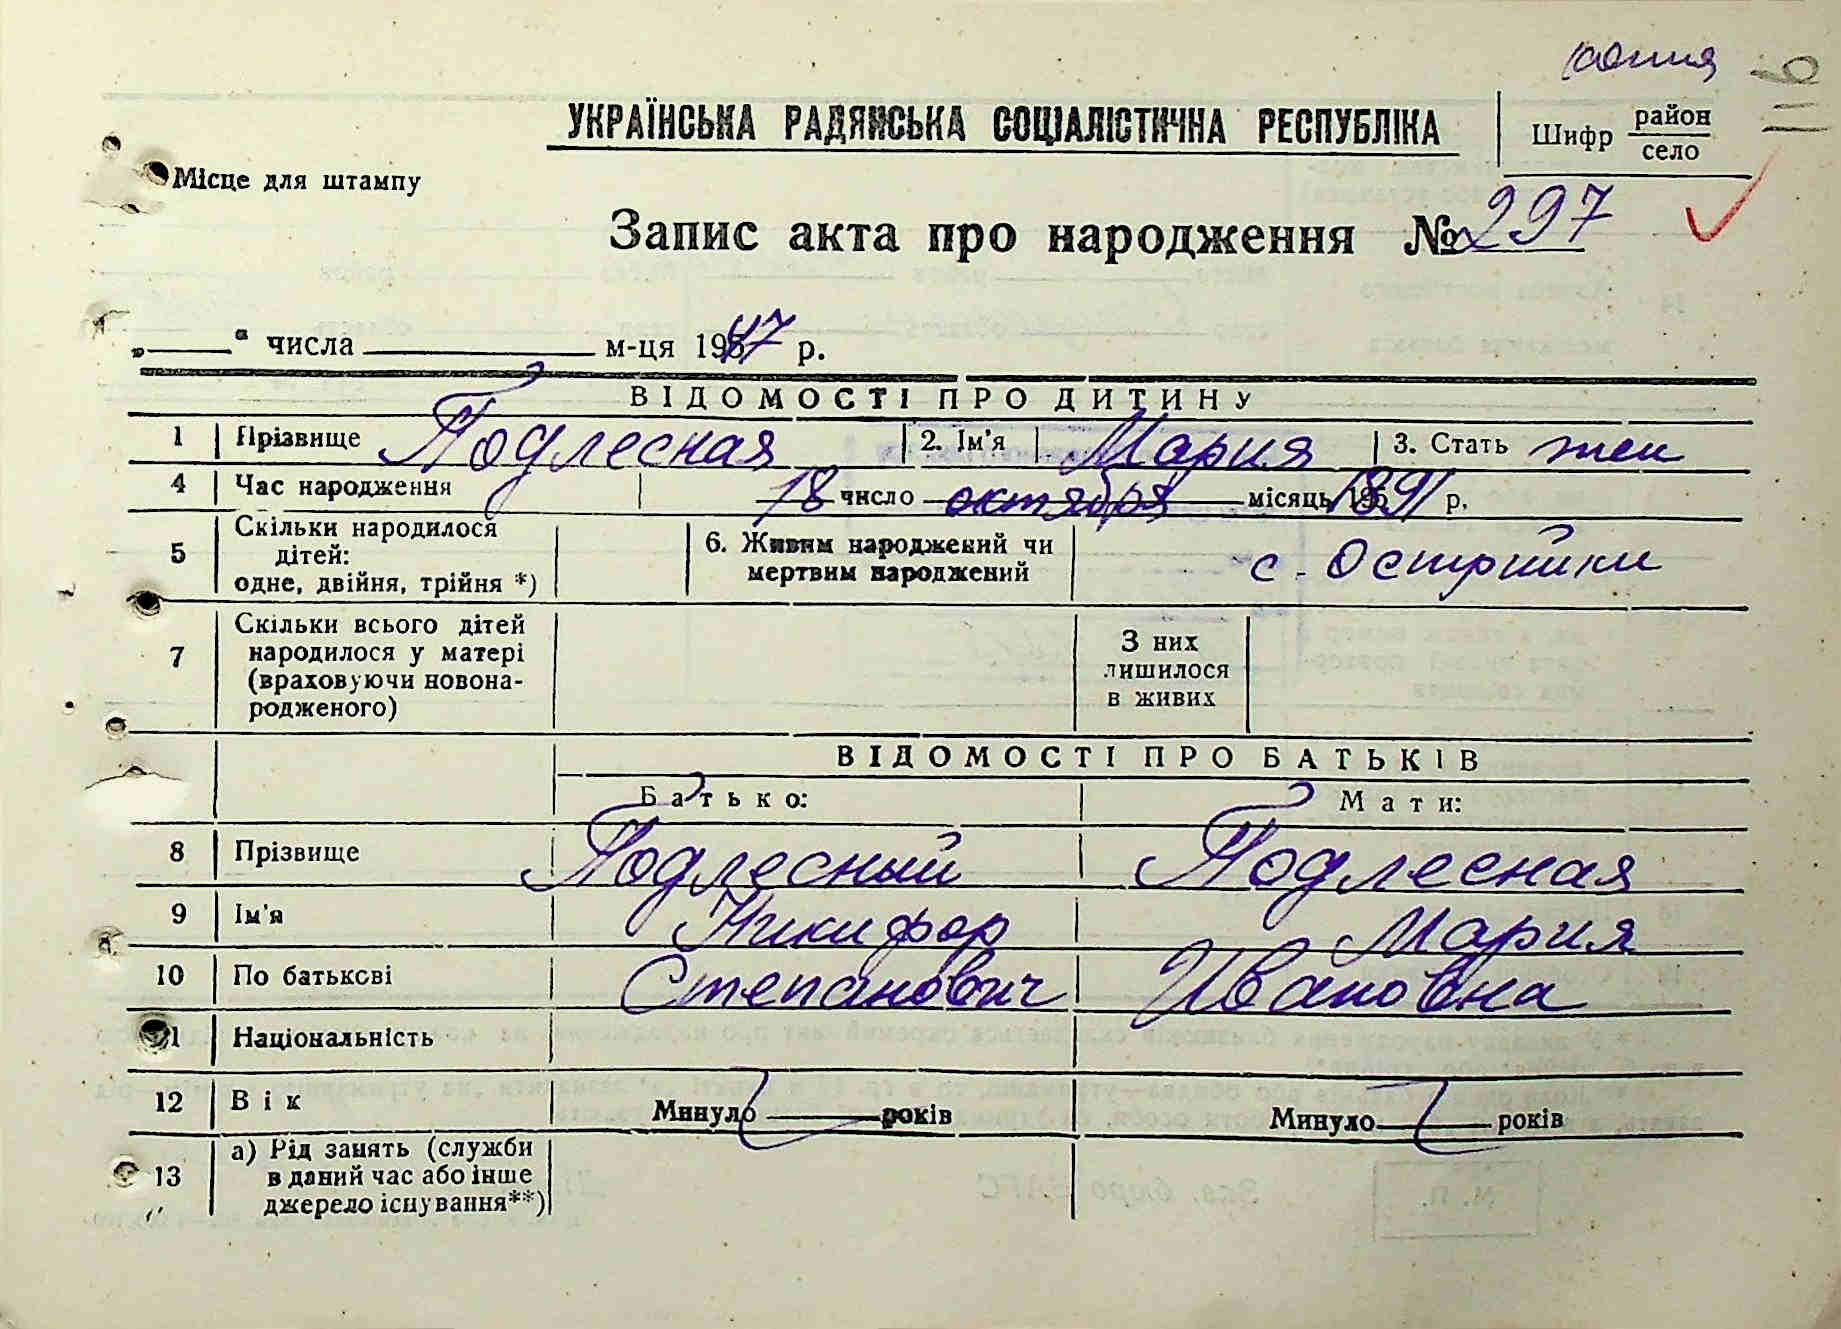 копия
116
УКРАЇНСЬКА РАДЯНСЬКА СОЦІАЛІСТИЧНА РЕСПУБЛІКА
Шифр район
село
Місце для штампу
Запис акта про народження № 297
„ “ числа м-ця 1947 р.
ВІДОМОСТІ ПРО ДИТИНУ
1 Прізвище Подлесная 2. Ім'я Мария 3. Стать жен
4 Час народження 18 число октября місяць 1891 р.
5 Скільки народилося дітей: одне, двійня, трійня *) 6. Живим народжений чи мертвим народжений с. Острийки
7 Скільки всього дітей народилося у матері (враховуючи новонародженого) З них лишилося в живих
ВІДОМОСТІ ПРО БАТЬКІВ
Батько: Мати:
8 Прізвище Подлесный Подлесная
9 Ім'я Никифор Мария
10 По батькові Степанович Ивановна
11 Національність
12 Вік Минуло років Минуло років
13 а) Рід занять (служби в даний час або інше джерело існування**)